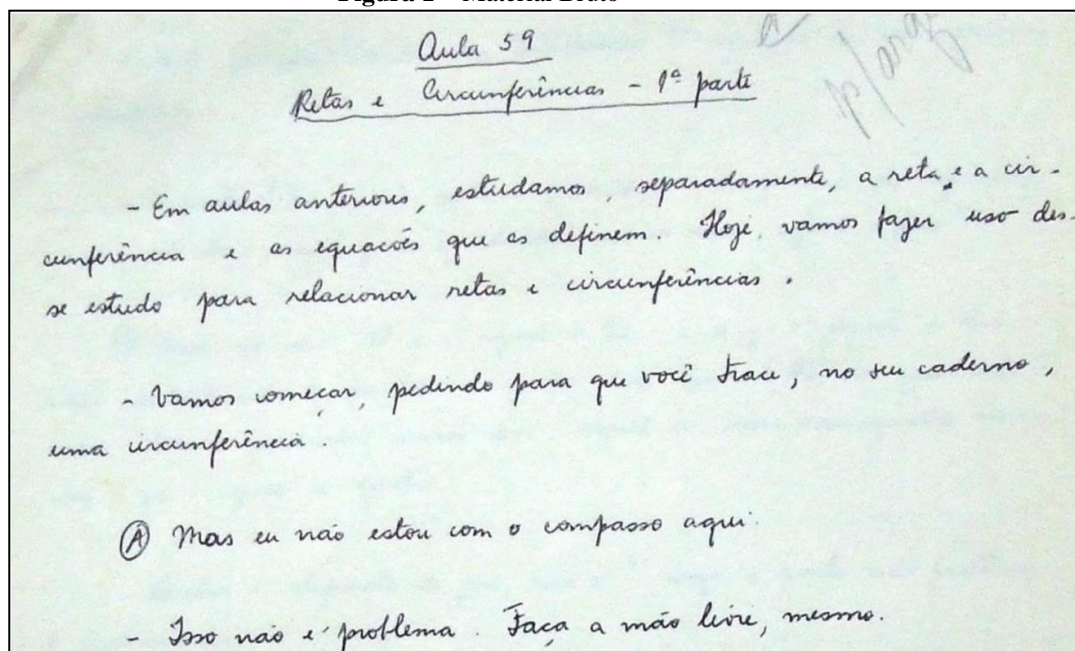 Aula 59
Retas e Circunferências - 1ª parte
- Em aulas anteriores, estudamos, separadamente, a reta e a cir-
cunferência e as equações que as definem. Hoje, vamos fazer uso des-
se estudo para relacionar retas e circunferências.
- Vamos começar, pedindo para que você trace, no seu caderno,
uma circunferência.
(A) Mas eu não estou com o compasso aqui.
- Isso não é problema. Faça a mão livre, mesmo.